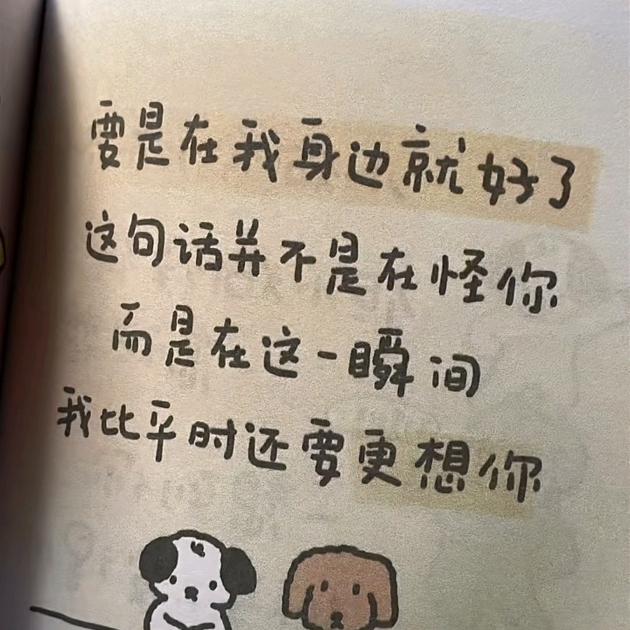 要是在我身边就好了
这句话并不是在怪你
而是在这一瞬间
我比平时还要更想你